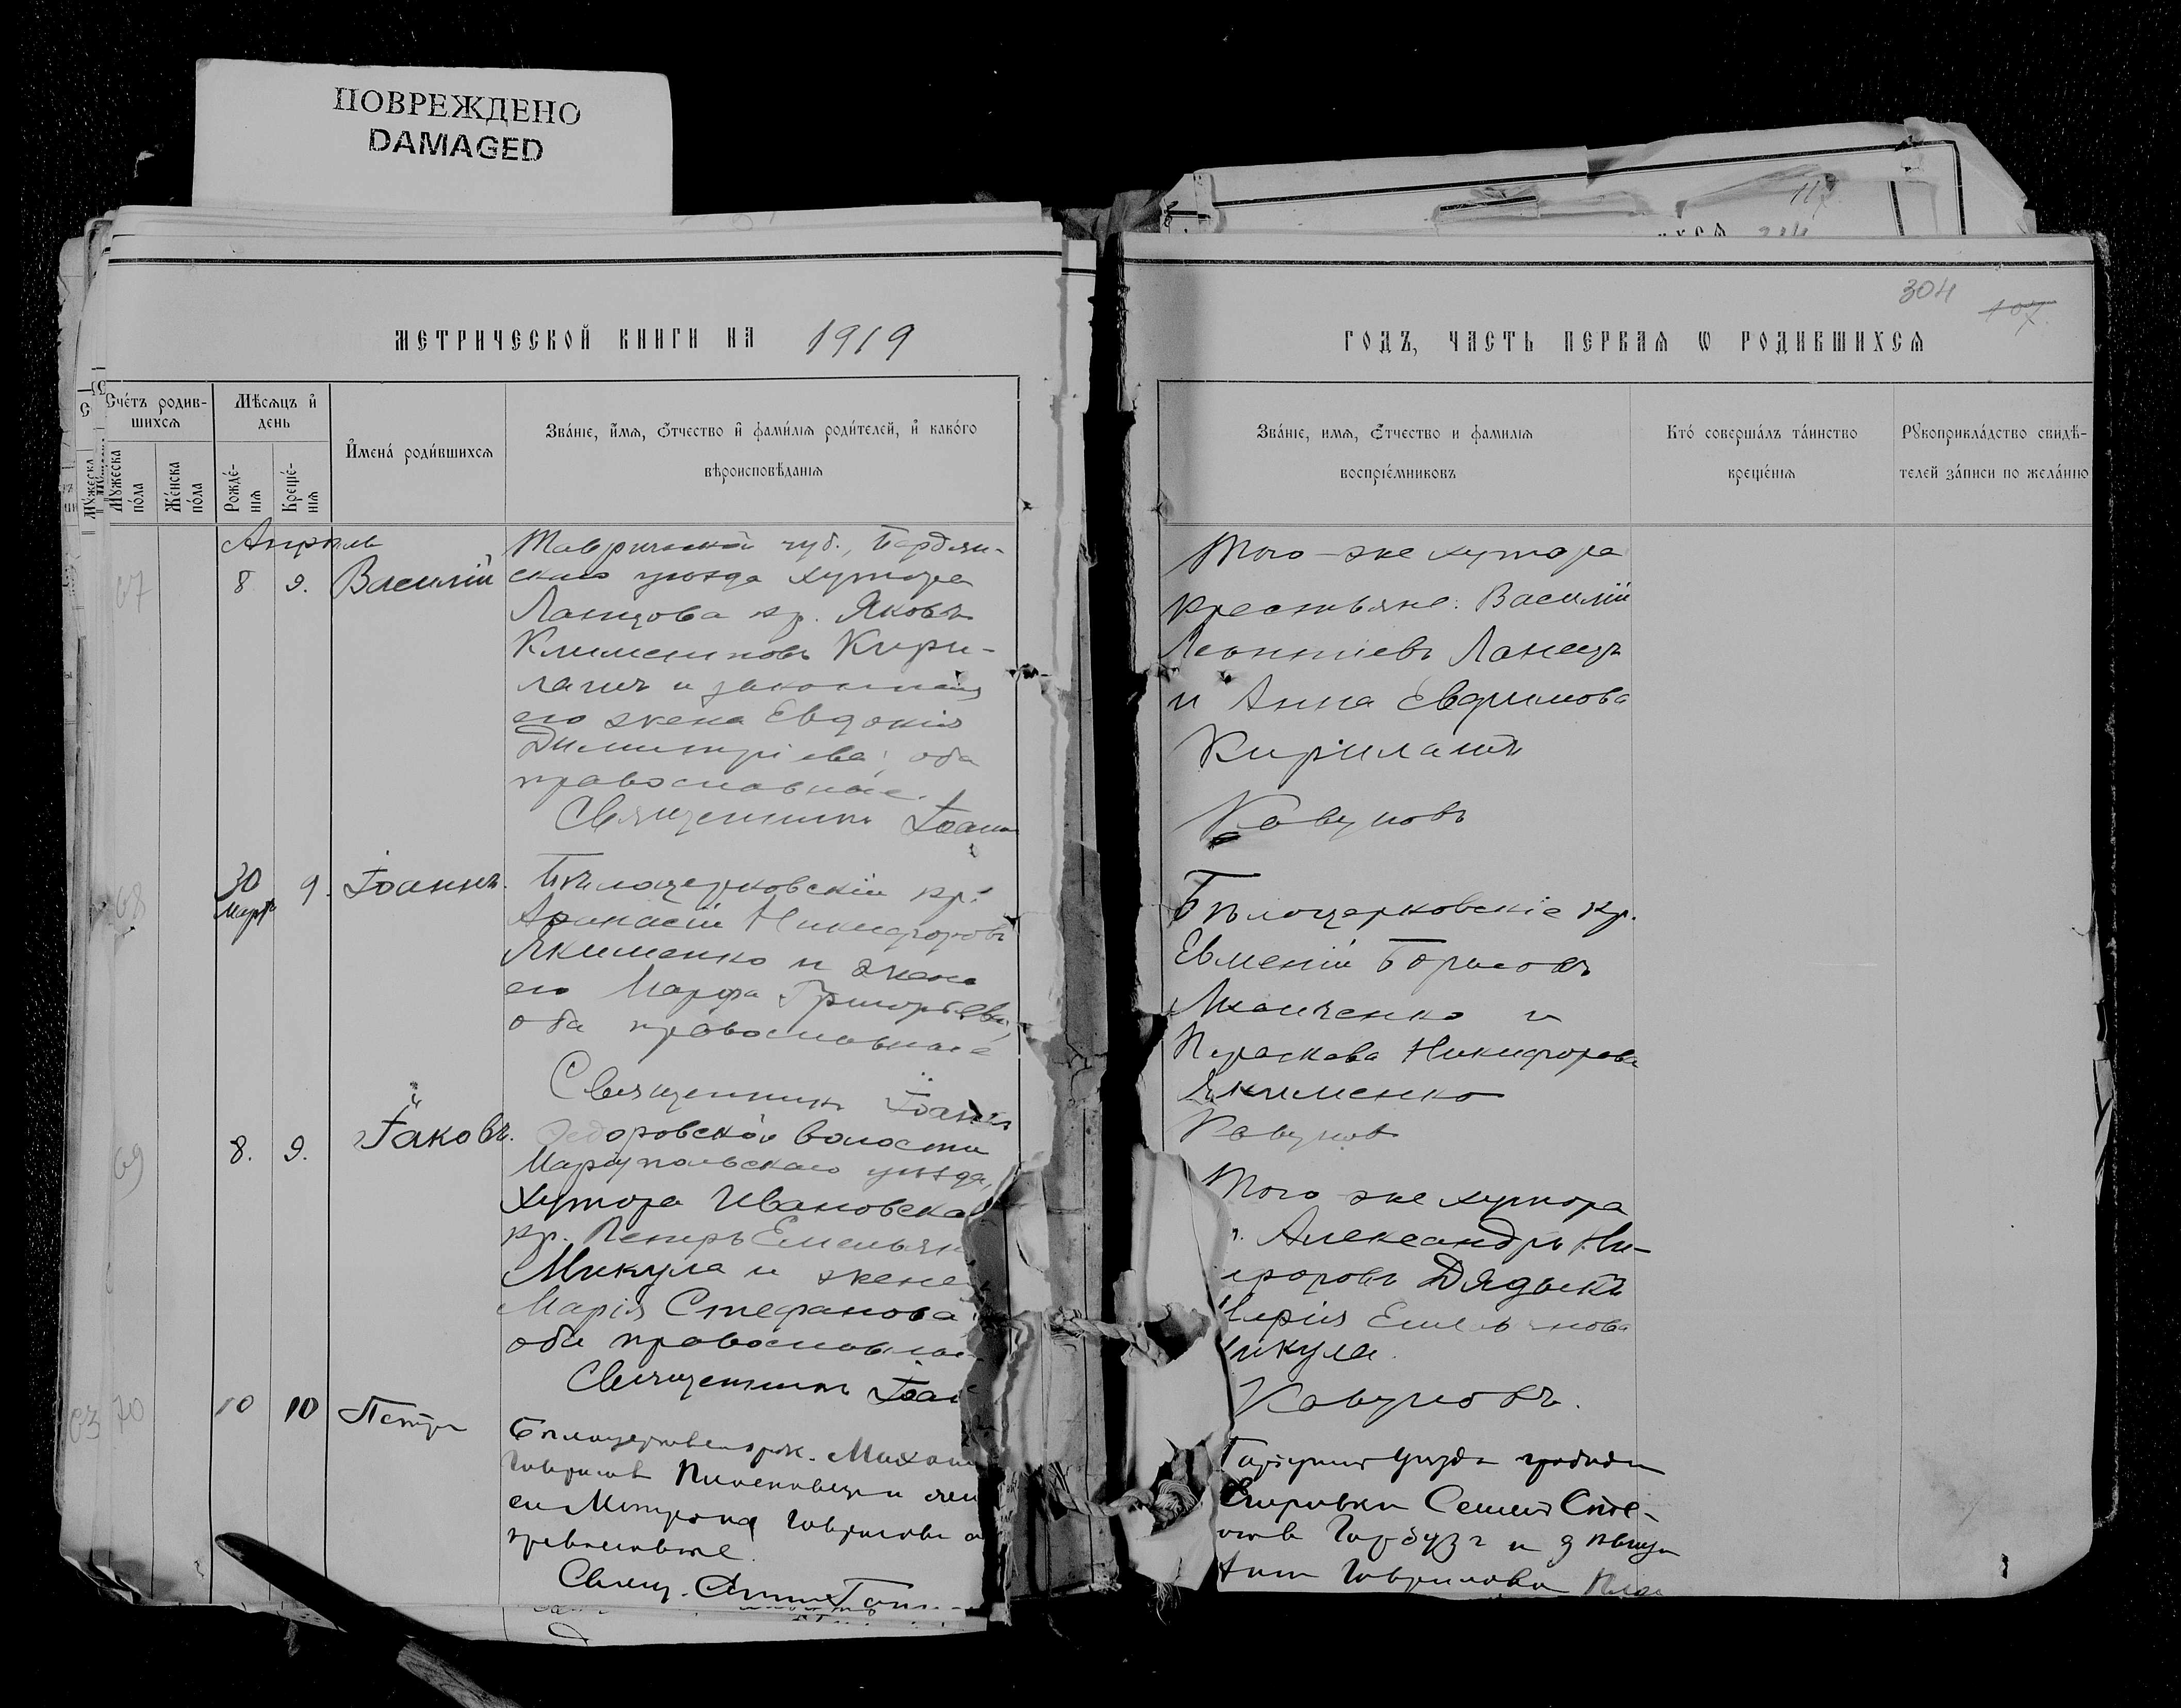 ПОВРЕЖДЕНО
DAMAGED
117
304
107
МЕТРИЧЕСКОЙ КНИГИ НА 1919
ГОДЪ, ЧАСТЬ ПЕРВАЯ Ѡ РОДИВШИХСЯ
Счéтъ родив-
шихся
Мѣсяцъ и
день
Имена́ роди́вшихся
Зва́ніе, и́мя, ѻ҆́тчество и фами́лія роди́телей, и како́го
вѣроисповѣ́данія
Мужеска
по́ла
Же́нска
по́ла
Рожде́-
нія
Креще́-
нія
Зва́ніе, имя, ѻ҆́тчество и фамилія
воспріе́мниковъ
Кто́ соверша́лъ та́инство
креще́нія
Рукоприкла́дство свидѣ́-
телей за́писи по жела́нію
Апрѣль
67
8
9.
Василій
Таврической губ., Бердян-
скаго уѣзда хутора
Ланцова кр. Яковъ
Климентовъ Кири-
лачъ и законная
его жена Евдокія
Димитріева, оба
православные.
Священникъ Іоаннъ
Того-же хутора
крестьяне: Василій
Леонтіевъ Ланецъ
и Анна Ефимова
Кирилачъ
Кавуновъ
68
30
Март
9.
Іоаннъ.
Бѣлоцерковскій кр.
Афанасій Никифоровъ
Якименко и жена
его Марфа Григорьева,
оба православные
Священникъ Іоаннъ
Бѣлоцерковскіе кр.
Евменій Борисовъ
и
Параскева Никифорова
Якименко
Кавуновъ
69
8.
9.
Іаковъ.
Федоровской волости
Маріупольскаго уѣзда,
хутора Ивановска
кр. Петръ Емельян
Микула и жена
Марія Стефанова
оба православные
Священникъ Іоан
Того же хутора
Александръ Ни-
форовъ Дядыкъ
Марія Емельянова
икула.
Кавуновъ.
63
70
10
10
Петръ
Михаи
Гавриловъ и жен
его Матрона Гаврилова
православные.
Свящ.
уѣзда
Семенъ Сте-
Гарбузъ и дѣвица
Гаврилова